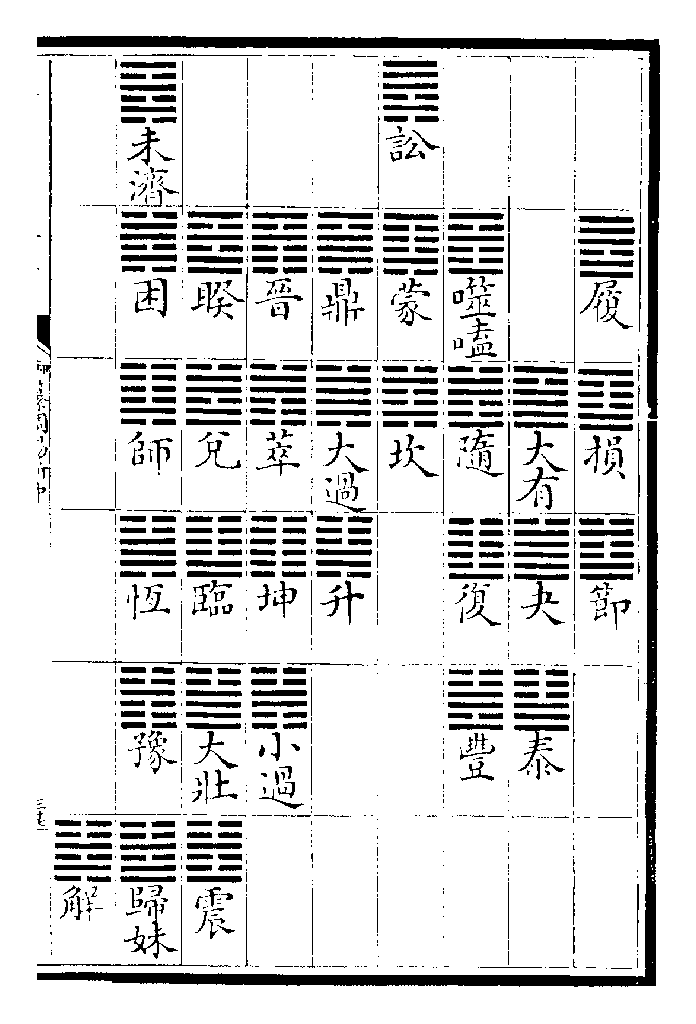 履
損
節
大有
夬
泰
噬嗑
隨
復
豐
訟
蒙
坎
鼎
大過
升
晉
萃
坤
小過
睽
兌
臨
大壯
震
未濟
困
師
恆
豫
歸妹
解